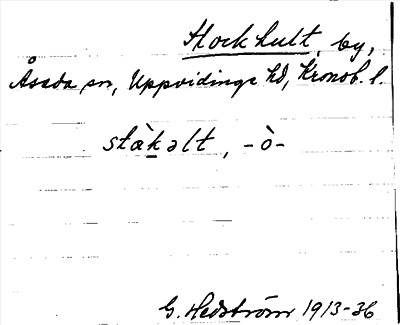 Stockhult, by,
Åseda sn, Uppvidinge hd, Kronob. l.
stàkəlt, -ò-
G. Hedström 1913-36